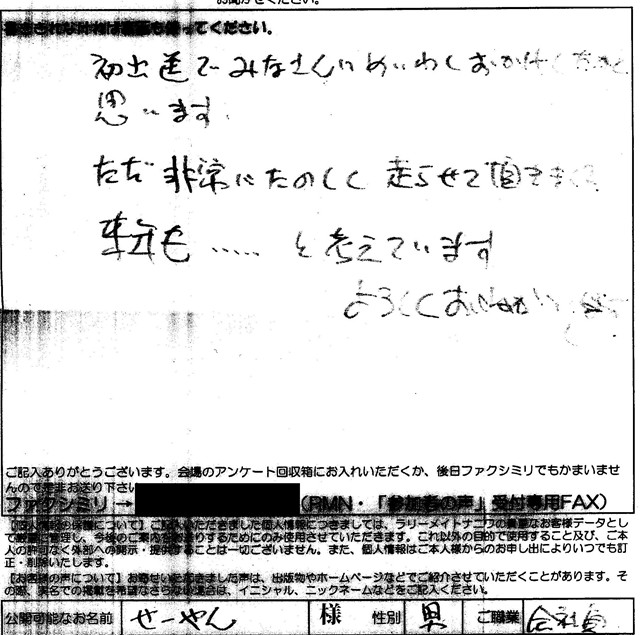 お聞かせください。
書ききれない時は裏面も使ってください。
初出走でみなさんにめいわくおかけしたかと
思います
ただ非常にたのしく走らせて頂きました
来年も……と考えています
よろしくおねがい
ご記入ありがとうございます。会場のアンケート回収箱にお入れいただくか、後日ファクシミリでもかまいませ
んので是非お送り下さい
ファクシミリ→ (RMN・「参加者の声」受付専用FAX)
【個人情報の保護について】ご記入いただきました個人情報につきましては、ラリーメイトナニワの貴重なお客様データとし
て厳重に管理し、今後のご案内をお送りするためにのみ使用させていただきます。これ以外の目的で使用すること及び、ご本
人の許可なく外部への開示・提供することは一切ございません。また、個人情報はご本人様からのお申し出によりいつでも訂
正・削除いたします。
【お客様の声について】お寄せいただきました声は、出版物やホームページなどでご紹介させていただくことがあります。そ
の際、実名での掲載を希望なさらない場合は、イニシャル、ニックネームなどをご記入ください。
公開可能なお名前 せーやん 様 性別 男 ご職業 会社員